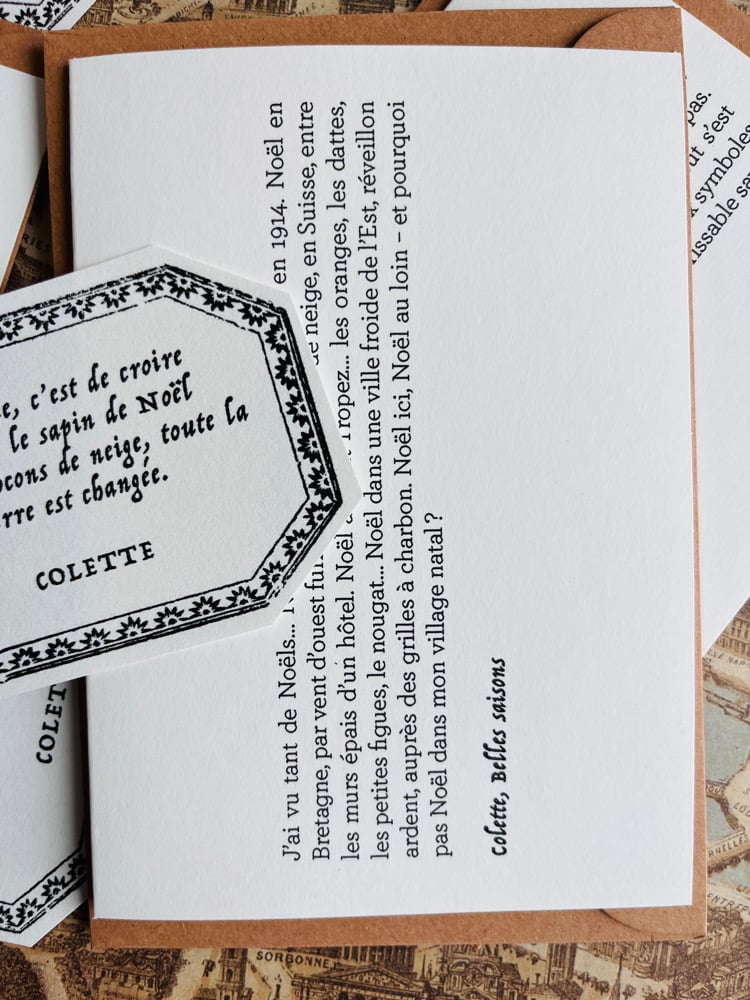 J'ai vu tant de Noëls... en 1914. Noël en
Bretagne, par vent d'ouest neige, en Suisse, entre
les murs épais d'un hôtel. Noël les oranges, les dattes,
les petites figues, le nougat... Noël dans une ville froide de l'Est, réveillon
ardent, auprès des grilles à charbon. Noël ici, Noël au loin – et pourquoi
pas Noël dans mon village natal ?
Colette, Belles saisons
c'est de croire
le sapin de Noël
de neige, toute la
est changée.
COLETTE
pas.
s'est
symboles
SORBONNE